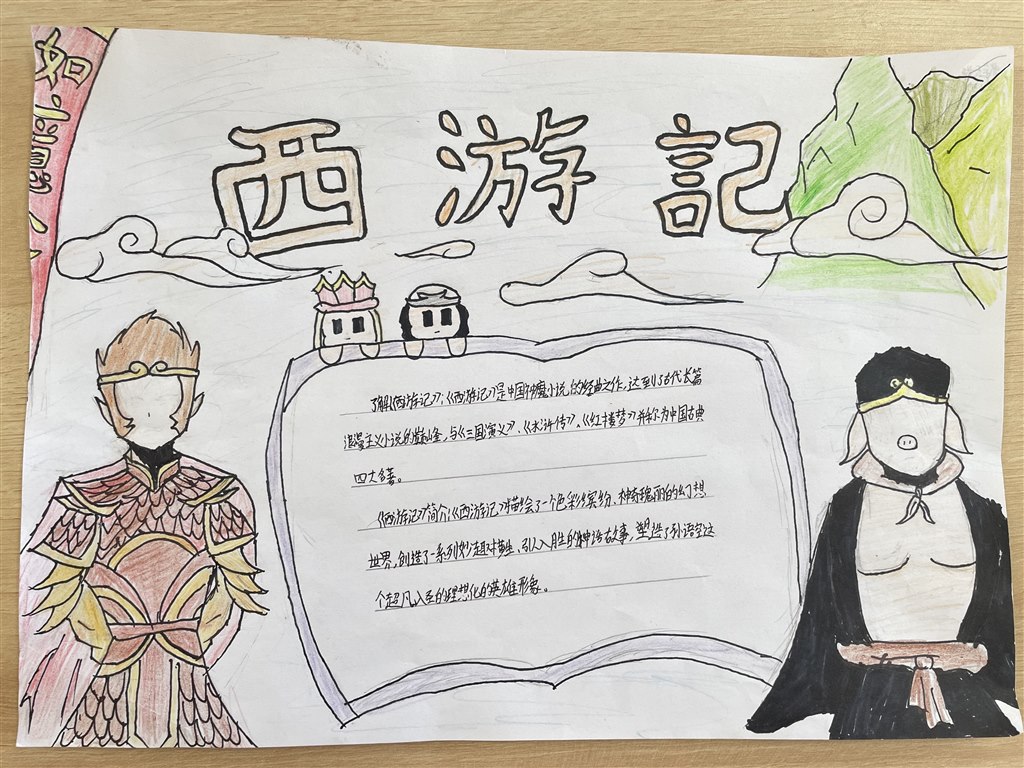 如意
西游記
了解《西游记》:《西游记》是中国神魔小说的经典之作,达到了古代长篇
浪漫主义小说的巅峰,与《三国演义》、《水浒传》、《红楼梦》并称为中国古典
四大名著。
《西游记》简介:《西游记》描绘了一个色彩缤纷、神奇瑰丽的幻想
世界,创造了一系列妙趣横生、引人入胜的神话故事,塑造了孙悟空这
个超凡入圣的理想化的英雄形象。